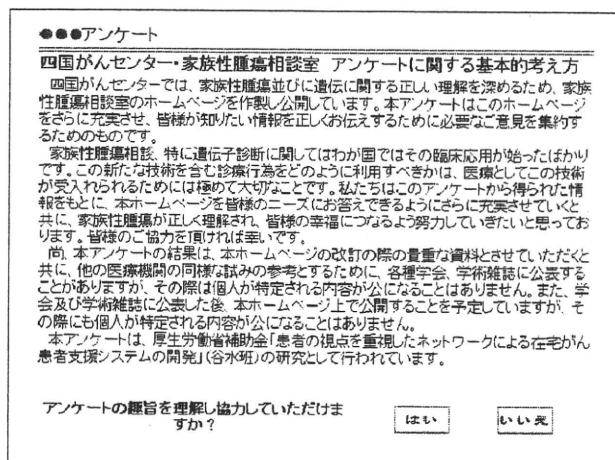 ●●●アンケート
四国がんセンター・家族性腫瘍相談室　アンケートに関する基本的考え方
四国がんセンターでは、家族性腫瘍並びに遺伝に関する正しい理解を深めるため、家族
性腫瘍相談室のホームページを作製し公開しています。本アンケートはこのホームページ
をさらに充実させ、皆様が知りたい情報を正しくお伝えするために必要なご意見を集約す
るためのものです。
家族性腫瘍相談、特に遺伝子診断に関してはわが国ではその臨床応用が始ったばかり
です。この新たな技術を含む診療行為をどのように利用すべきかは、医療としてこの技術
が受入れられるためには極めて大切なことです。私たちはこのアンケートから得られた情
報をもとに、本ホームページを皆様のニーズにお答えできるようにさらに充実させていくと
共に、家族性腫瘍が正しく理解され、皆様の幸福につなるよう努力していきたいと思ってお
ります。皆様のご協力を頂ければ幸いです。
尚、本アンケートの結果は、本ホームページの改訂の際の貴重な資料とさせていただくと
共に、他の医療機関の同様な試みの参考とするために、各種学会、学術雑誌に公表する
ことがありますが、その際は個人が特定される内容が公になることはありません。また、学
会及び学術雑誌に公表した後、本ホームページ上で公開することを予定していますが、そ
の際にも個人が特定される内容が公になることはありません。
本アンケートは、厚生労働省補助金「患者の視点を重視したネットワークによる在宅がん
患者支援システムの開発」（谷水班）の研究として行われています。
アンケートの趣旨を理解し協力していただけま
すか？
はい
いいえ